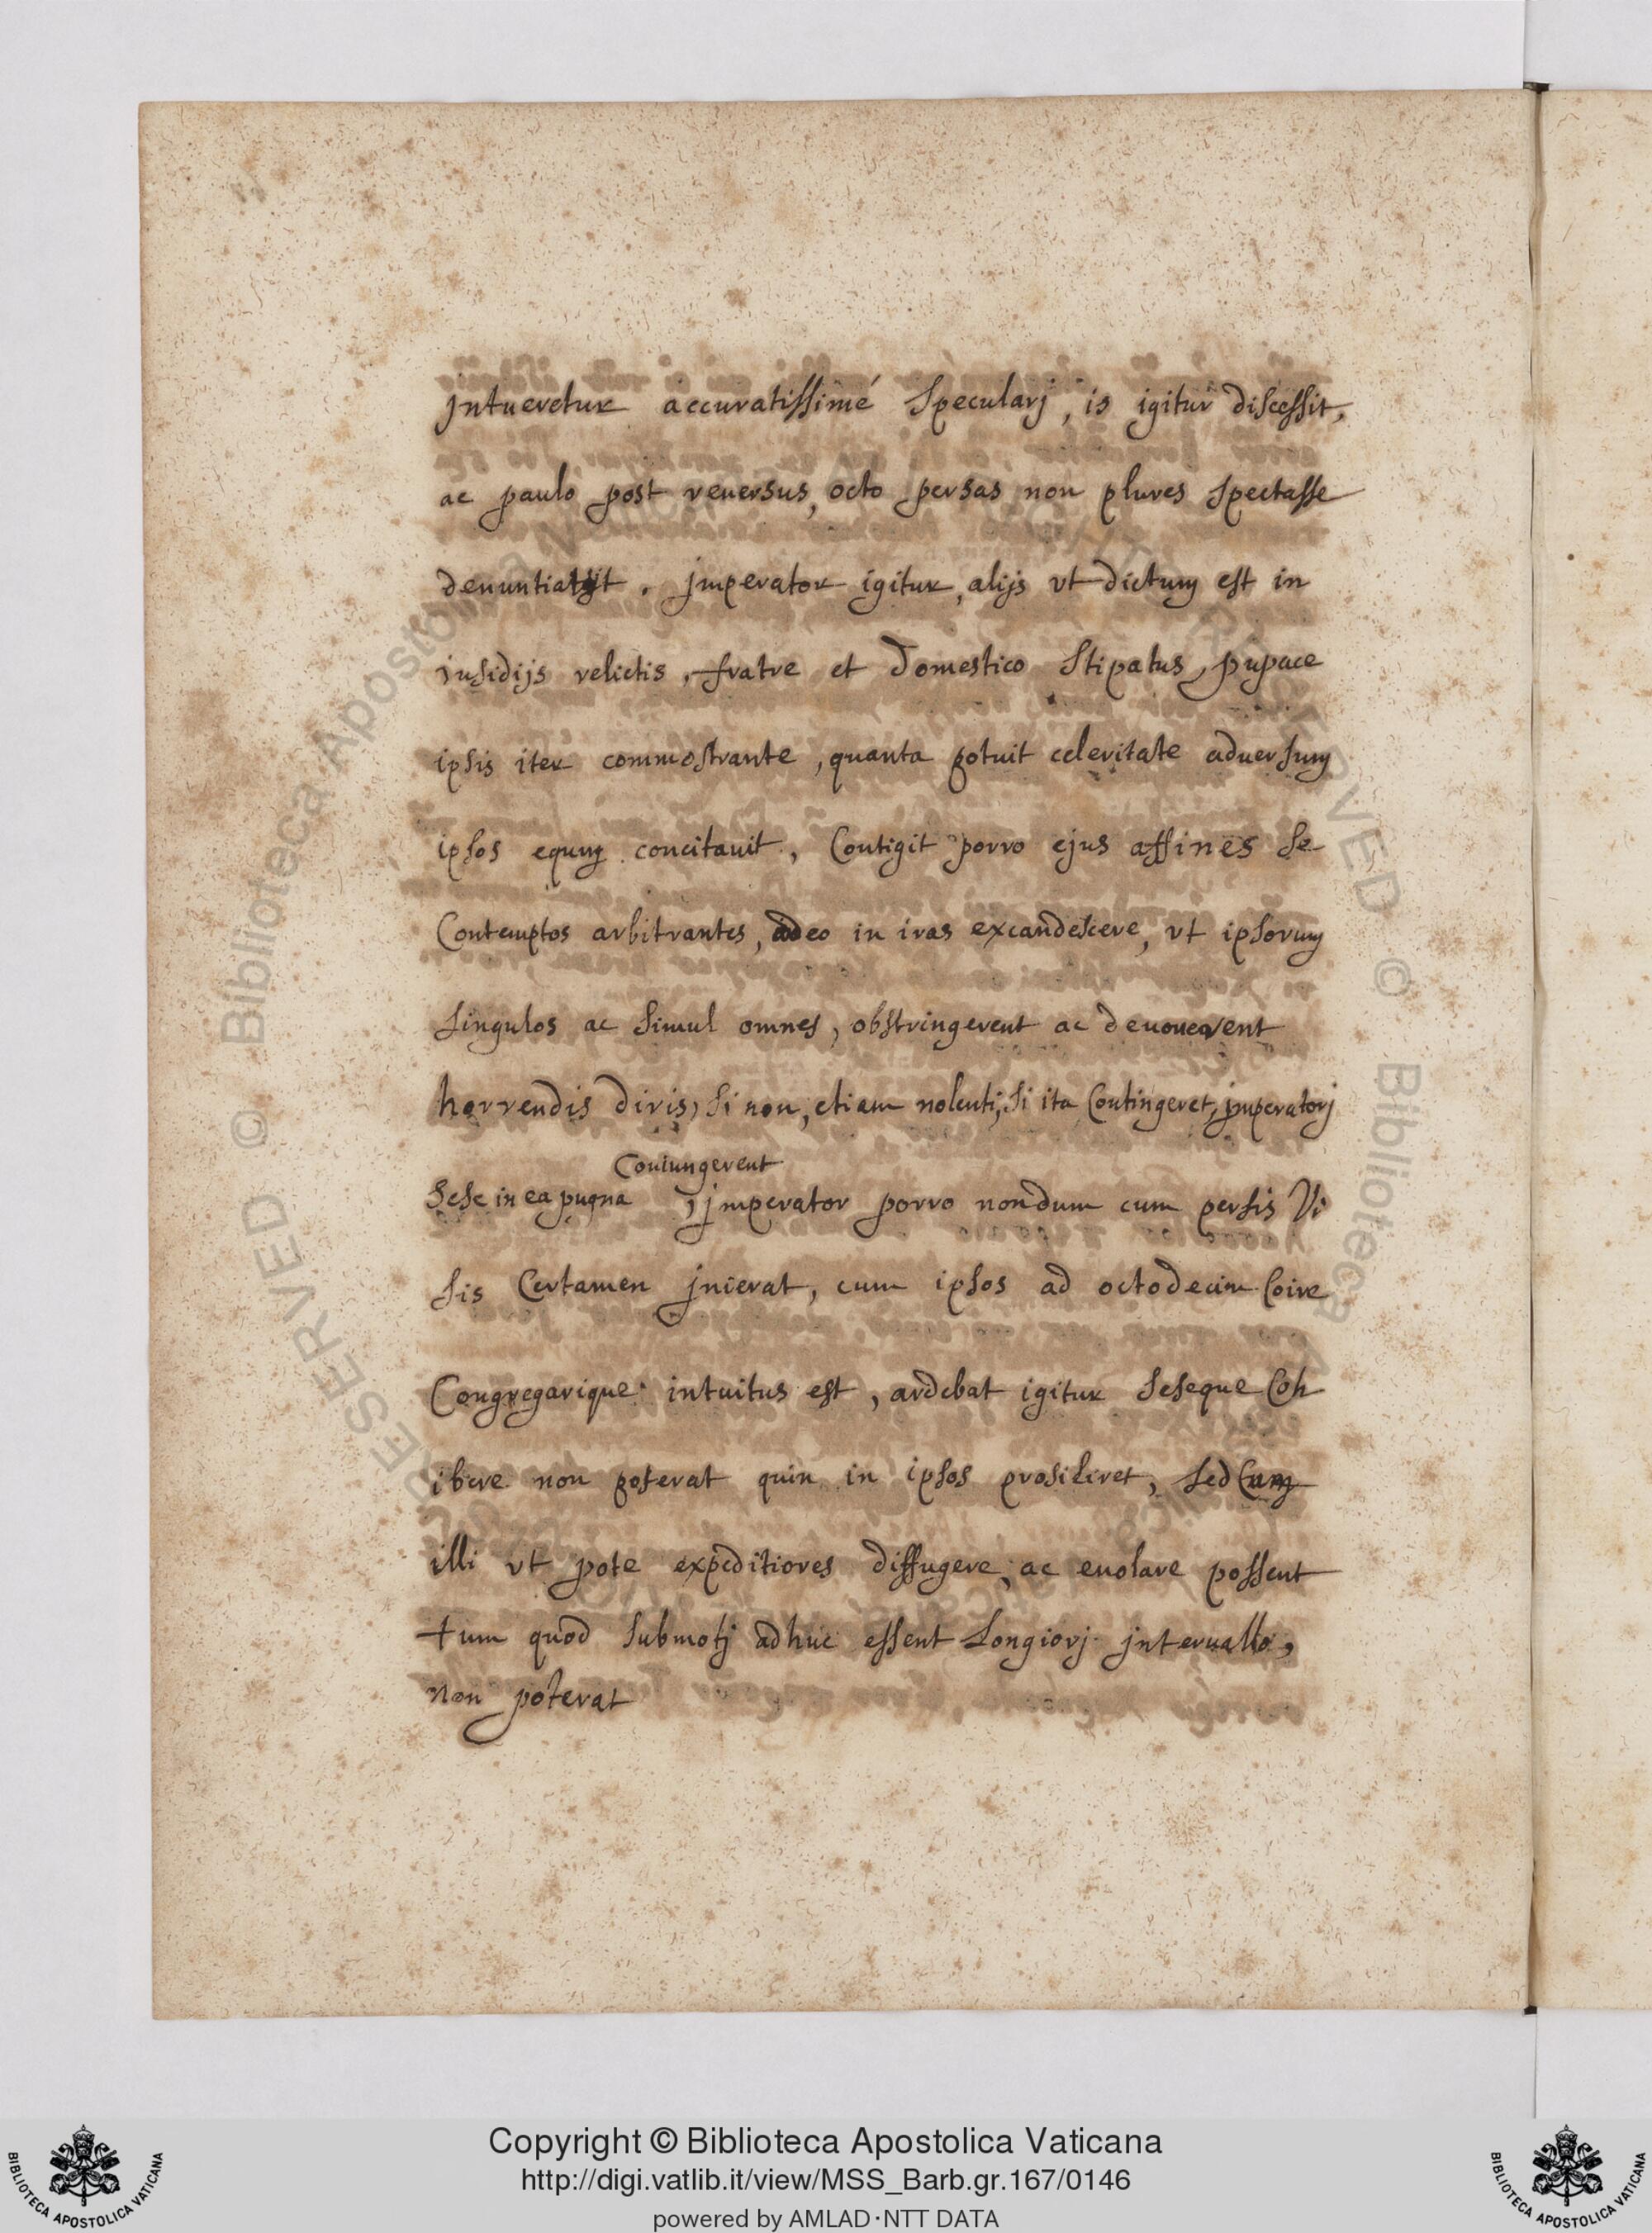 jntueretur accuratissimé specularj, is igitur discessit,
ac paulo post reuersus, octo persas non plures spectasse
denuntiauit. jmperator igitur, alijs vt dictum est in
insidijs relictis, fratre et Domestico stipatus, pupace
ipsis iter commostrante, quanta potuit celeritate aduersum
ipsos equum concitauit, Contigit porro ejus affines se
Contemptos arbitrantes, adeo in iras excandescere, vt ipsorum
singulos ac simul omnes, obstringerent ac deuouerent
horrendis diris, si non, etiam nolenti, si ita Contingeret, jmperatorj
Coniungerent
sese in ea pugna, jmperator porro nondum cum persis Vi
sis Certamen jnierat, cum ipsos ad octodecim Coire
Congregarique intuitus est, ardebat igitur seseque Coh
ibere non poterat quin in ipsos prosiliret, sed Cum
illi vt pote expeditiores diffugere, ac euolare possent
tum quod submotj adhuc essent Longiorj jnteruallo,
non poterat
Copyright © Biblioteca Apostolica Vaticana
http://digi.vatlib.it/view/MSS_Barb.gr.167/0146
powered by AMLAD·NTT DATA
BIBLIOTECA APOSTOLICA VATICANA
BIBLIOTECA APOSTOLICA VATICANA